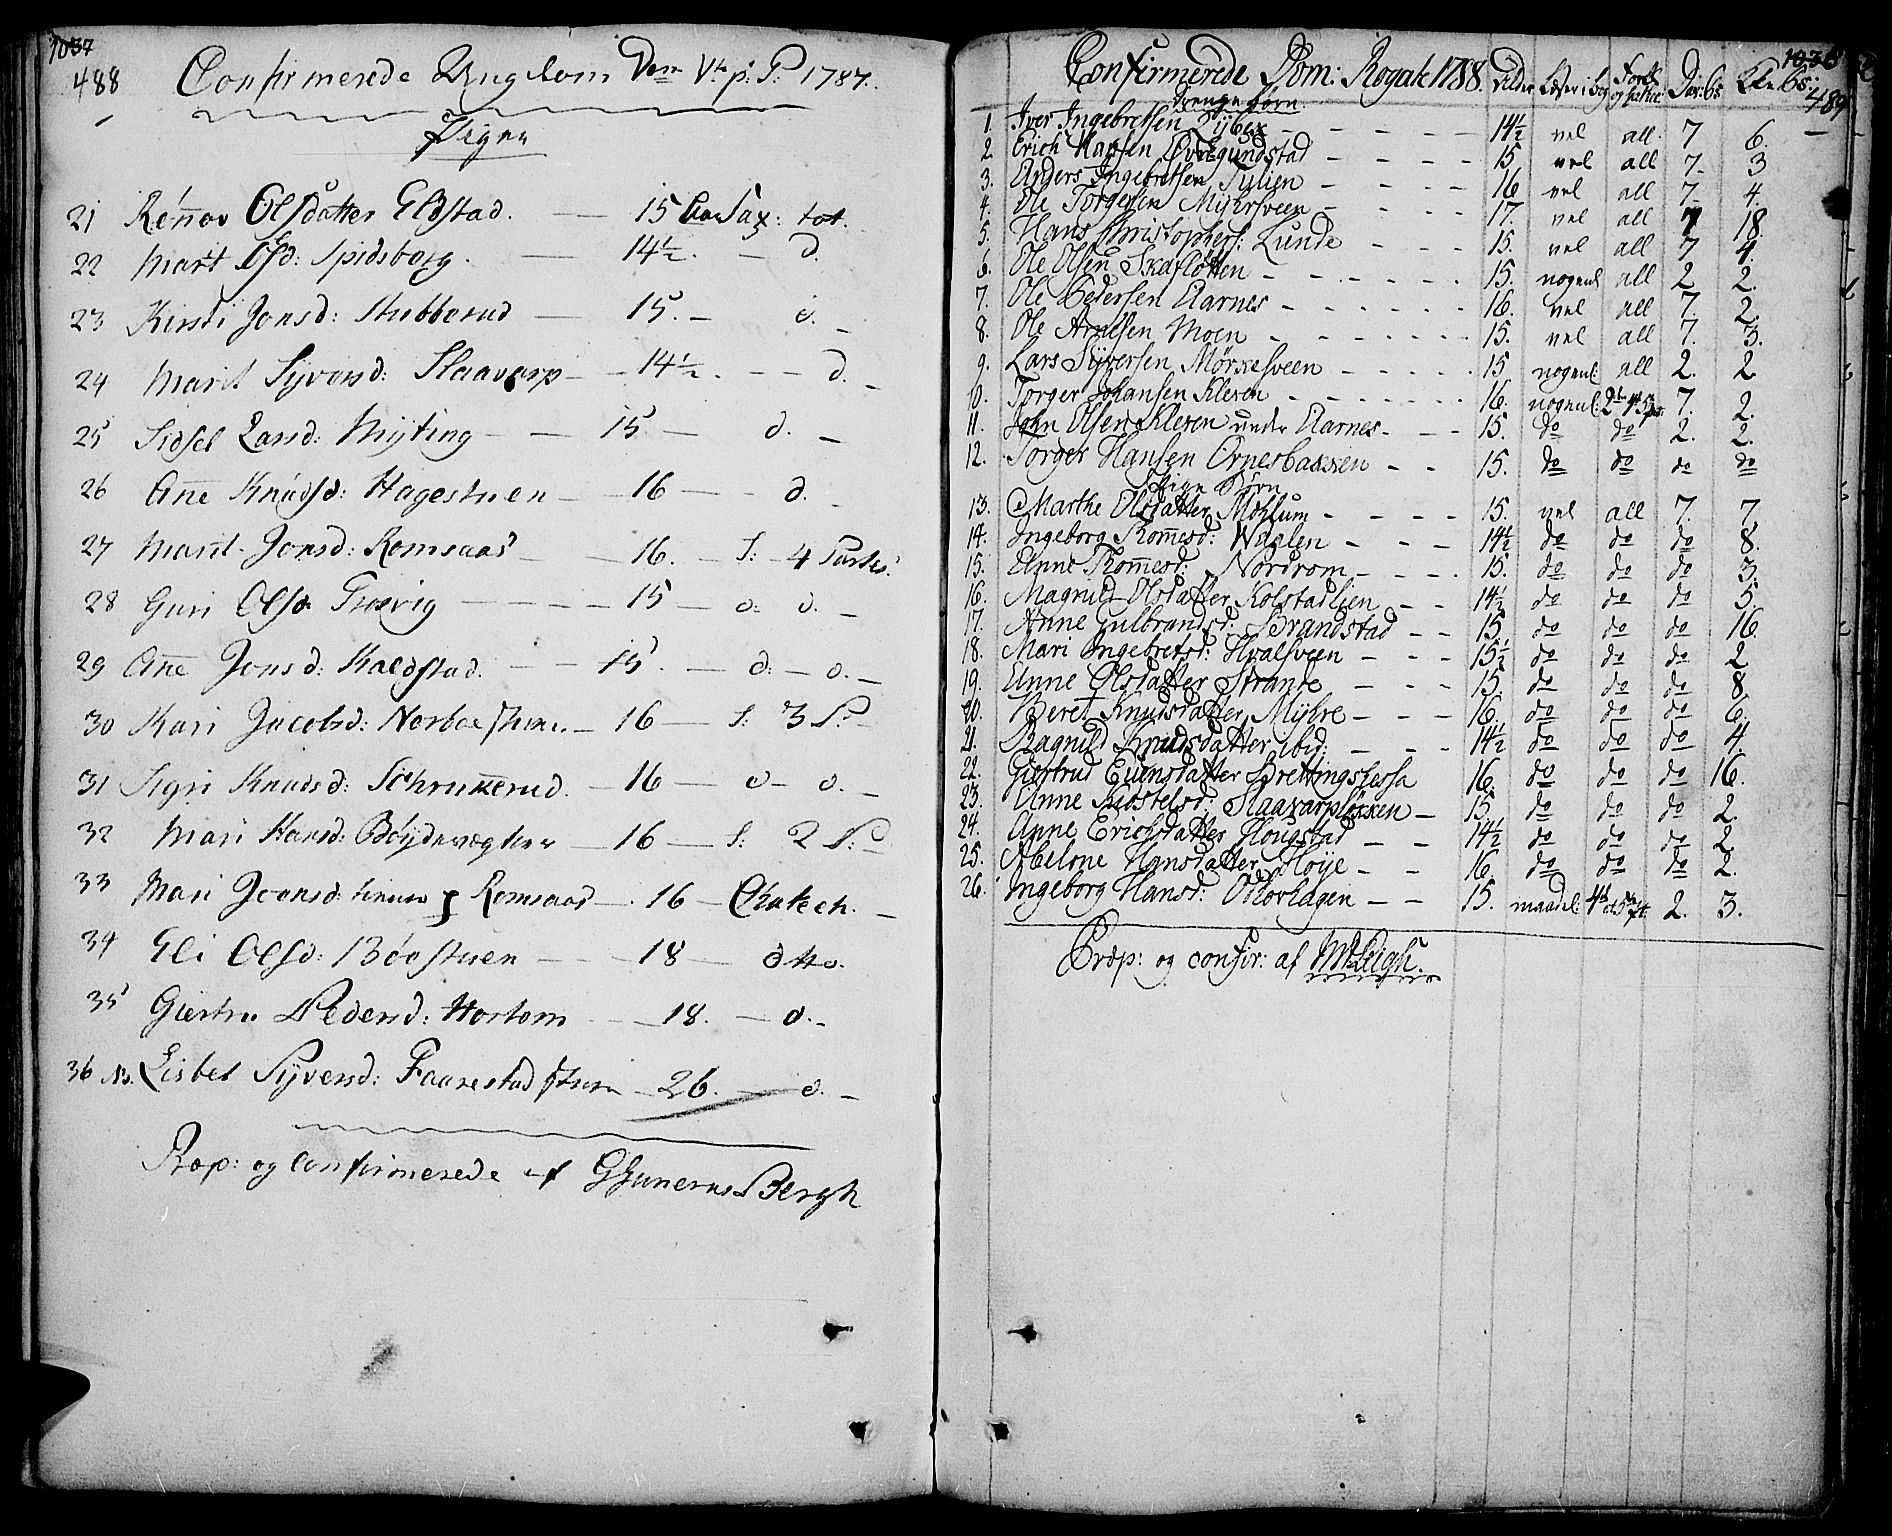 1037
488 Confirmerede Ungdom Dom. V p: T: 1787.
Piger
21 Rönnov Olsdatter Eldstad. — 15 tot.
22 Marit Olsd: Spidsberg. — 14½. — d.
23 Kirsti Jonsd: Stubberud — 15. — d. —
24 Marit Syversd: Slaavarp — 14½. — — d. —
25 Sidsel Larsd: Myting — — 15 — d. —
26 Añe Knudsd: Hagestuen — 16 — d. —
27 Marit Jonsd: Romsaas — 16. — S: — 4 Parter.
28 Guri Olsd — 15 — d: d. —
29 Añe Jonsd: Kaldstad. — — 15. — d: — d. —
30 Kari Jacobsd: — 16 — S: 3 P: —
31 Sigri Knudsd: Schrukkerud. — 16 — d — d. —
32 Mari Hansd: — 16 — S: 2 P: —
33 Mari Joensd: Romsaas — 16 — Chatech. —
34 Eli Olsd: Böestuen — — 18 — dtto.
35 Giertru Pedersd: Hortom — 18. — d. —
36 Nb. Lisbet Syversd: Faarestadstuen — 26. — d. —
Præp: og confirmerede af G Gunerus Bergh

1036
489
Confirmerede Dom: Rogate 1788. Alder Læser i Bog
Drenge Börn.
1. Iver Ingebretsen — 14½ vel all 7 6.
2. Erich Hansen Övregundstad — 15 vel all 7. 3
3. Anders Ingebretsen Tulien — 16 vel all 7. 4.
4. Ole Torgersen Myhrsveen — 17. vel all 7 18.
5. Hans Christophers: Lunde — 15. vel all 7 4.
6. Ole Olsen Skaflötten — 15. nogenl all 2 2.
7. Ole Pedersen Aarnes — 16. vel all 7. 2.
8. Ole Arnesen Moen — 15. vel all 7. 3.
9. Lars Syversen Mörkesveen — 15 nogenl: all 2. 2
10. Torger Johansen Kleven — 16. nogenl: 7. 2.
11. John Olsen Kleven under Aarnes — 15. do do 2. 2.
12. Torger Hansen Ornesbakken — 15. do do do do
Pige Börn
13. Marthe Olsdatter Mohlum — 15. vel all 7. 7
14. Ingeborg Tom̄esd: Waalen — 14½ do do do 8.
15. Anne Tom̄esd: Nordrom — 15. do do do 3.
16. Magnild Olsdatter Kolstadlien — 14½ do do do 5.
17. Anne Gulbrandsd: Brandstad — 15. do do do 16.
18. Mari Ingebretsd: Hvalsveen — 15½ do do do 2
19. Anne Olsdatter Strande — 15 do do do 8
20. Beret Knudsdatter Myhre — 16. do do do 6.
21. Ragnild Knudsdatter ibid: — 14½ do do do 4.
22. Giertrud Evensdatter — 16. do do do 16.
23. Anne Kiostelsd: Slaavarplökken — 15. do do do 2.
24. Anne Erichsdatter Hougstad — 14½ do do do 2
25. Abelone Hansdatter Höye — 16. do do do 2.
26. Ingeborg Hansd: — 15. maadel: 2. 3.
Præp: og confir: af